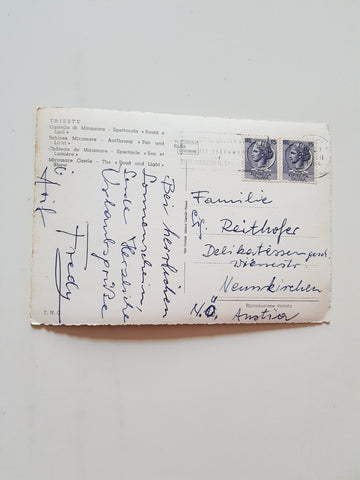 TRIESTE
Castello di Miramare - Spettacolo «Suoni e
Luci»
Schloss Miramare - Aufführung «Ton und
Licht»
Château de Miramare - Spectacle «Son et
Lumière»
Miramare Castle - The «Sound and Light»
Show
Bei herrlichem
Sonnenschein,
Ende herzliche
Urlaubsgrüße
Fredy
Familie
Reithofer
Delikatessengesch.
Wienerstr.
Neunkirchen
N.Ö.
Austria
Riproduzione vietata